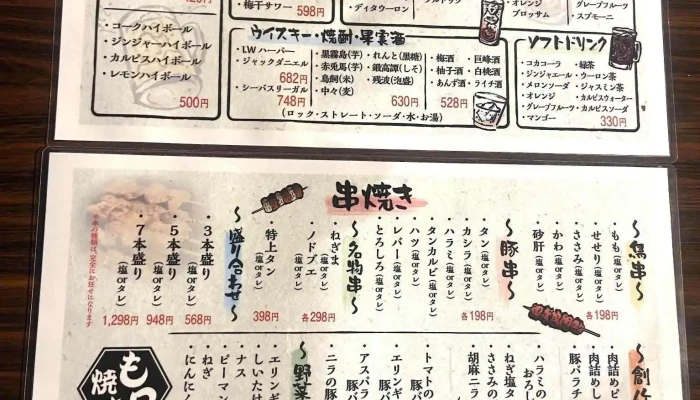 420円
・コークハイボール
・ジンジャーハイボール
・カルピスハイボール
・レモンハイボール
500円
・梅干サワー 598円
・ディタウーロン
・オレンジ
ブロッサム
グレープフルーツ
・スプモーニ
ウイスキー・焼酎・果実酒
・LWハーパー
・ジャックダニエル
682円
・シーバスリーガル
748円
・黒霧島(芋)
・赤兎馬(芋)
・島飼(米)
・中々(麦)
・れんと(黒糖)
・鍛高譚(しそ)
・残波(泡盛)
630円
・梅酒
・柚子酒
・あんず酒
・巨峰酒
・白桃酒
・ライチ酒
528円
(ロック・ストレート・ソーダ・水・お湯)
ソフトドリンク
・コカコーラ
・ジンジャエール
・メロンソーダ
・オレンジ
・グレープフルーツ
・マンゴー
・緑茶
・ウーロン茶
・ジャスミン茶
・カルピスウォーター
・カルピスソーダ
330円
串焼き
〜鳥串〜
・もも(塩orタレ)
・せせり(塩orタレ)
・ささみ(塩orタレ)
・かわ(塩orタレ)
・砂肝(塩orタレ)
各198円
〜豚串〜
・タン(塩orタレ)
・カシラ(塩orタレ)
・ハラミ(塩orタレ)
・タンカルビ(塩orタレ)
・ハツ(塩orタレ)
・レバー(塩orタレ)
・とろしろ(塩orタレ)
各198円
〜名物串〜
・ねぎま(塩orタレ)
・ノドブエ(塩orタレ)
各298円
・特上タン(塩orタレ)
398円
〜盛り合わせ〜
・3本盛り(塩orタレ)
568円
・5本盛り(塩orタレ)
948円
・7本盛り(塩orタレ)
1,298円
※串の種類は、完全にお任せになります
〜創作
・肉詰めピ
・肉詰めし
・豚バラチ
・ハラミの
おろし
・ねぎ塩タ
・ささみの
・胡麻ニラ
・トマトの
豚バ
・エリンギ
豚バ
・アスパラ
豚バ
・ニラの豚
〜野菜
・エリンギ
・しいたけ
・ナス
・ピーマン
・ねぎ
・にんにく
もつ
焼